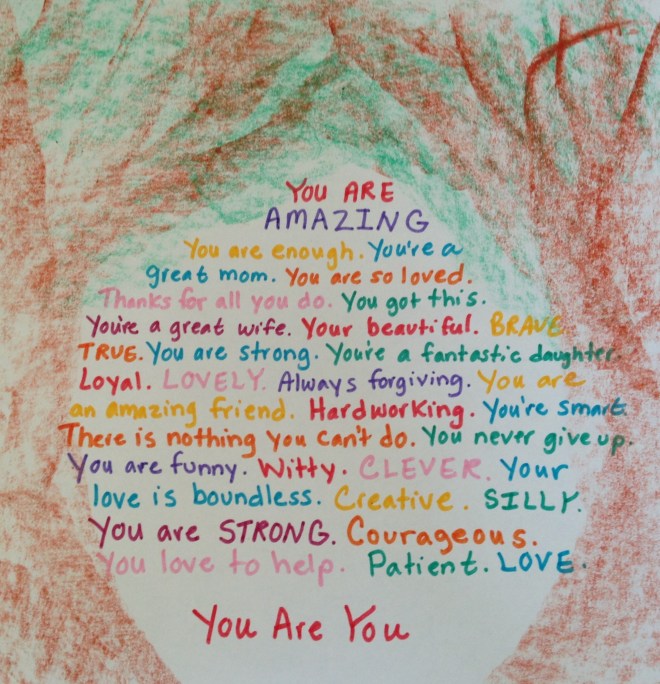 YOU ARE
AMAZING
You are enough. You're a
great mom. You are so loved.
Thanks for all you do. You got this.
You're a great wife. Your beautiful. BRAVE
TRUE. You are strong. You're a fantastic daughter.
Loyal. LOVELY. Always forgiving. You are
an amazing friend. Hardworking. You're smart.
There is nothing you can't do. You never give up.
You are funny. Witty. CLEVER. Your
love is boundless. Creative. SILLY.
You are STRONG. Courageous.
You love to help. Patient. LOVE.
You Are You